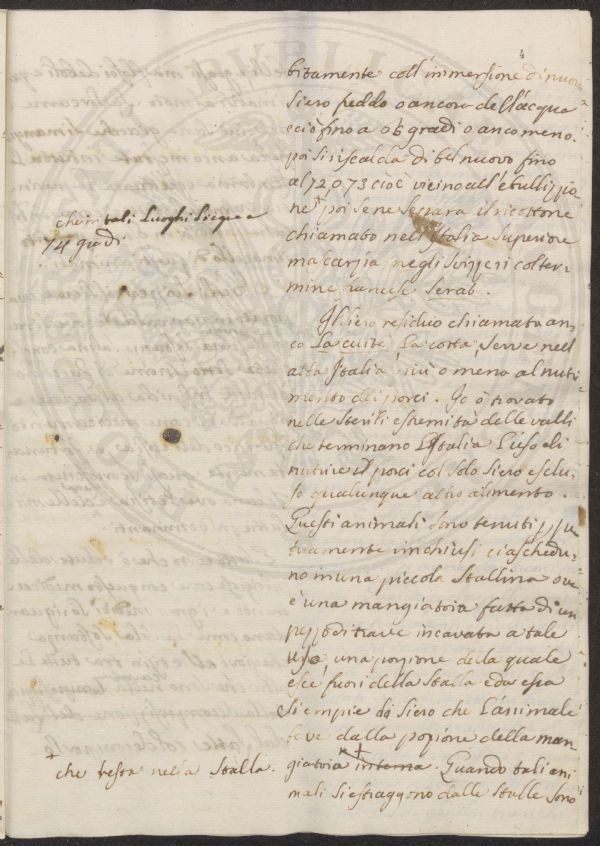 4
bitamente coll'immersione di nuovo
siero freddo o ancora dell'acqua
e ciò fino a gradi o anco meno.
poi si riscalda di bel nuovo fino
al 72 o 73 cioè vicino all'ebullizzio
ne poi se ne separa il ricottone
chiamato nell'Italia superiore
mascarpia negli Svizzeri col ter-
mine serab.
che in tali Luoghi
74 gradi
Il siero residuo chiamato an-
co La cuite, La cotta, serve nell
alta Italia più o meno al nutri
mento dei porci. Io ò trovato
nelle sterili estremità delle valli
che terminano L'Italia L'uso di
nutrire i porci col solo siero esclu-
so qualunque altro alimento.
Questi animali sono tenuti ppe
tuamente inchiusi ciaschedu-
no in una piccola stallina ove
è una mangiatoia fatta di un
pezzo di trave incavata a tale
uso, una porzione della quale
esce fuori della stalla ed essa
si empie di siero che L'animale
beve dalla porzione della man
giatoia interna. Quando tali ani
mali si estraggono dalle stalle sono
+
che resta nella stalla.